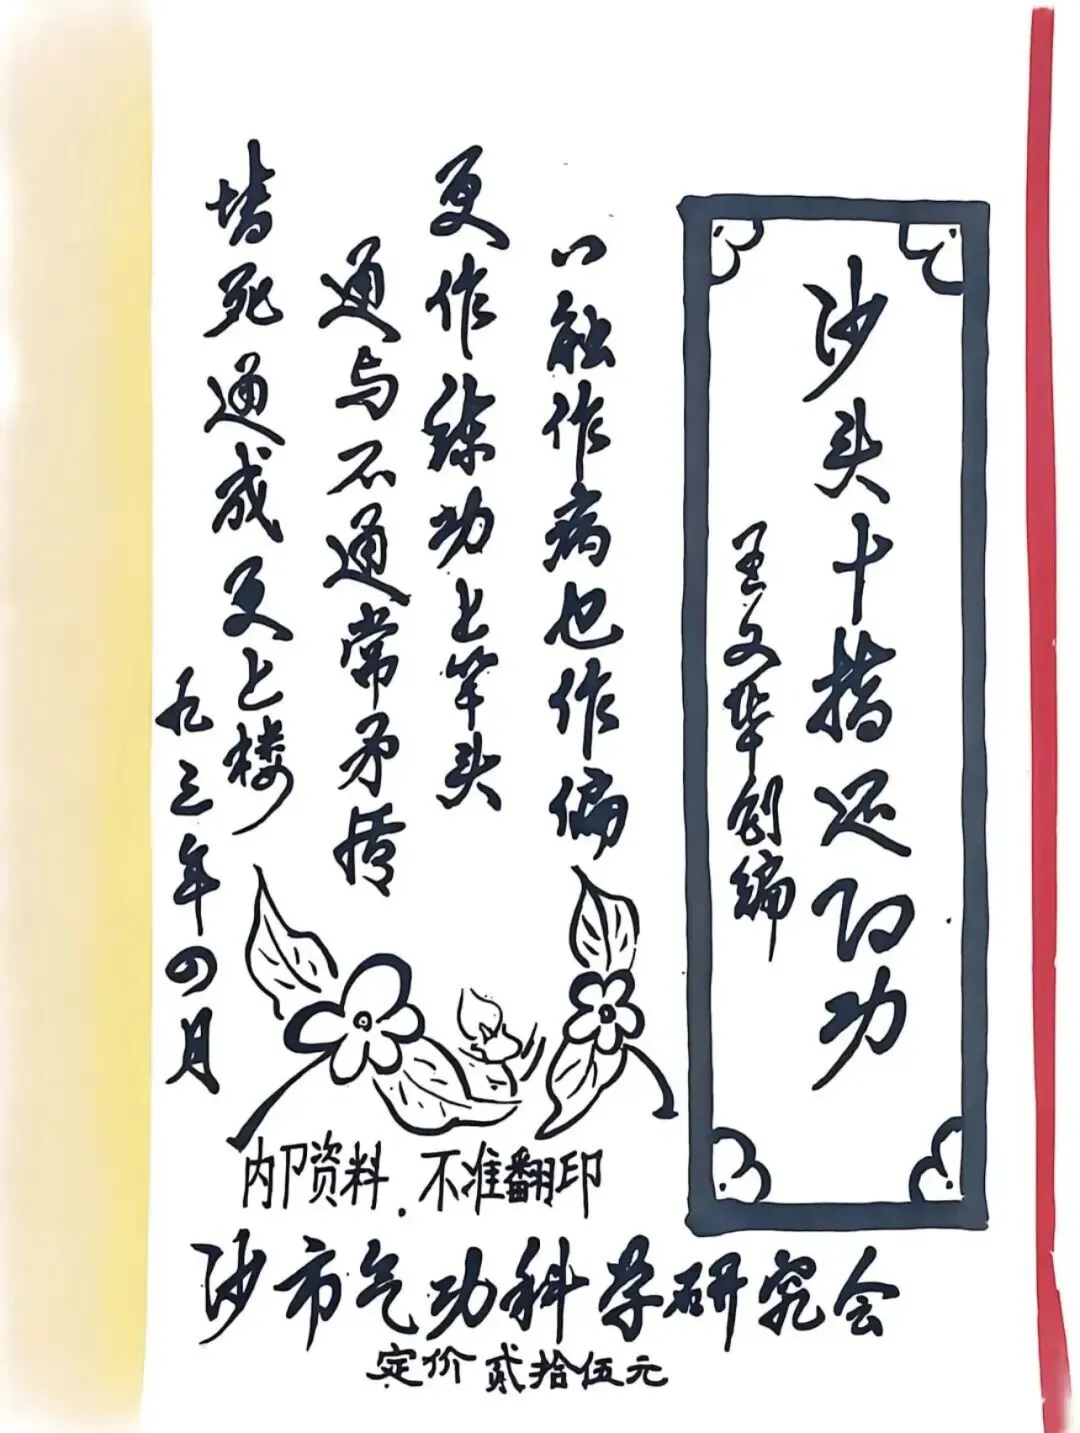 沙头十还阳功
王文华创编
八触作病也作偏
更作练功上竿头
通与不通常矛
堵死通成更上楼
九三年四月
内卩资料.不准翻印
沙市气功科学研究会
定价贰拾伍元